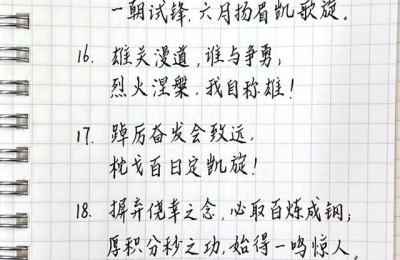 一朝试锋，六月扬眉凯歌旋。
16. 雄关漫道，谁与争勇，
烈火涅槃，我自称雄！
17. 踔厉奋发会致远，
枕戈百日定凯旋！
18. 摒弃侥幸之念，必取百炼成钢；
厚积分秒之功，始得一鸣惊人。